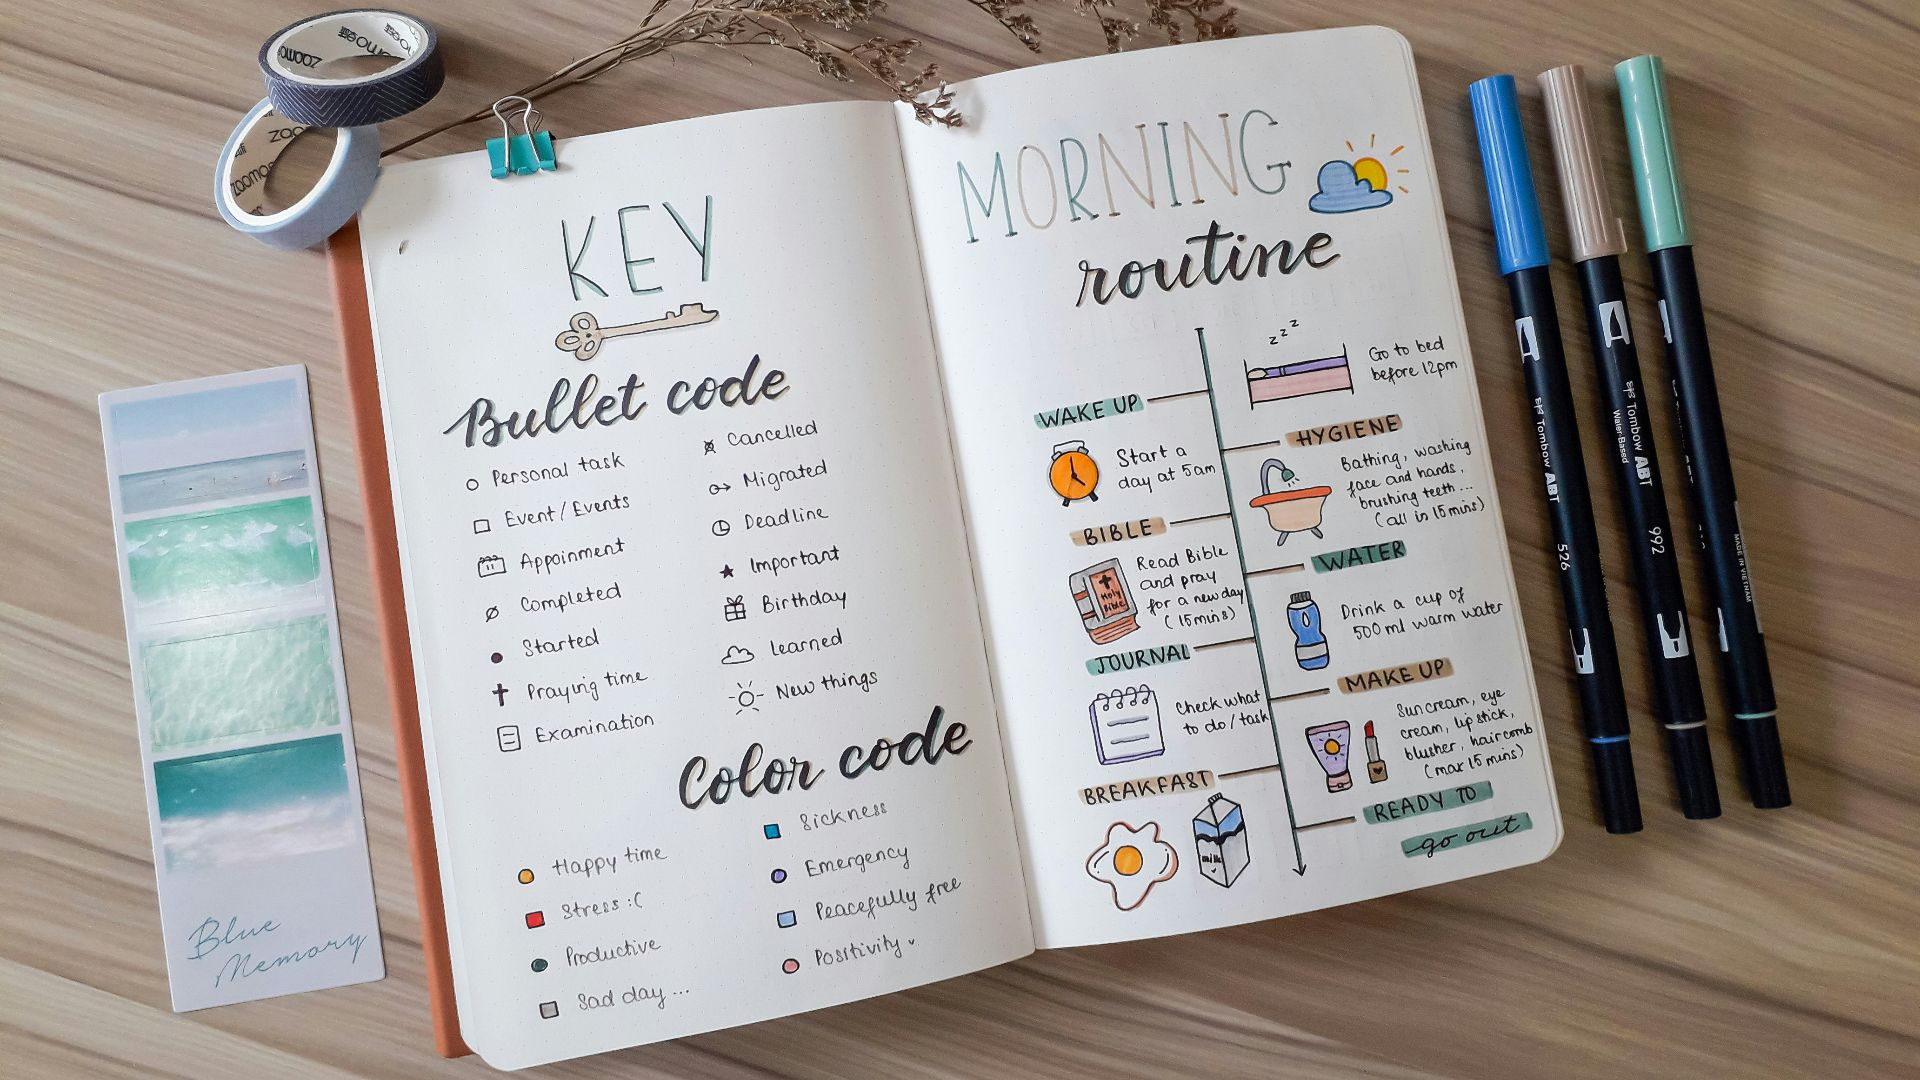 zoomoest
zoomo
KEY
Bullet code
Personal task
Event / Events
Appoinment
Completed
Started
Praying time
Examination
Cancelled
Migrated
Deadline
Important
Birthday
Learned
New things
Color code
Happy time
Stress :(
Productive
Sad day ...
Sickness
Emergency
Peacefully free
Positivity
MORNING
routine
zzz
Go to bed
before 12pm
WAKE UP
Start a
day at 5am
HYGIENE
Bathing, washing
face and hands,
brushing teeth...
(all in 15 mins)
BIBLE
Holy
Bible
Read Bible
and pray
for a new day
(15mins)
WATER
Drink a cup of
500 ml warm water
JOURNAL
Check what
to do / task
MAKE UP
Sun cream, eye
cream, lip stick,
blusher, hair comb
(max 15 mins)
BREAKFAST
milk
READY TO
go out
Blue
Memory
Tombow ABT
526
Tombow ABT
Water Based
992
MADE IN VIETNAM